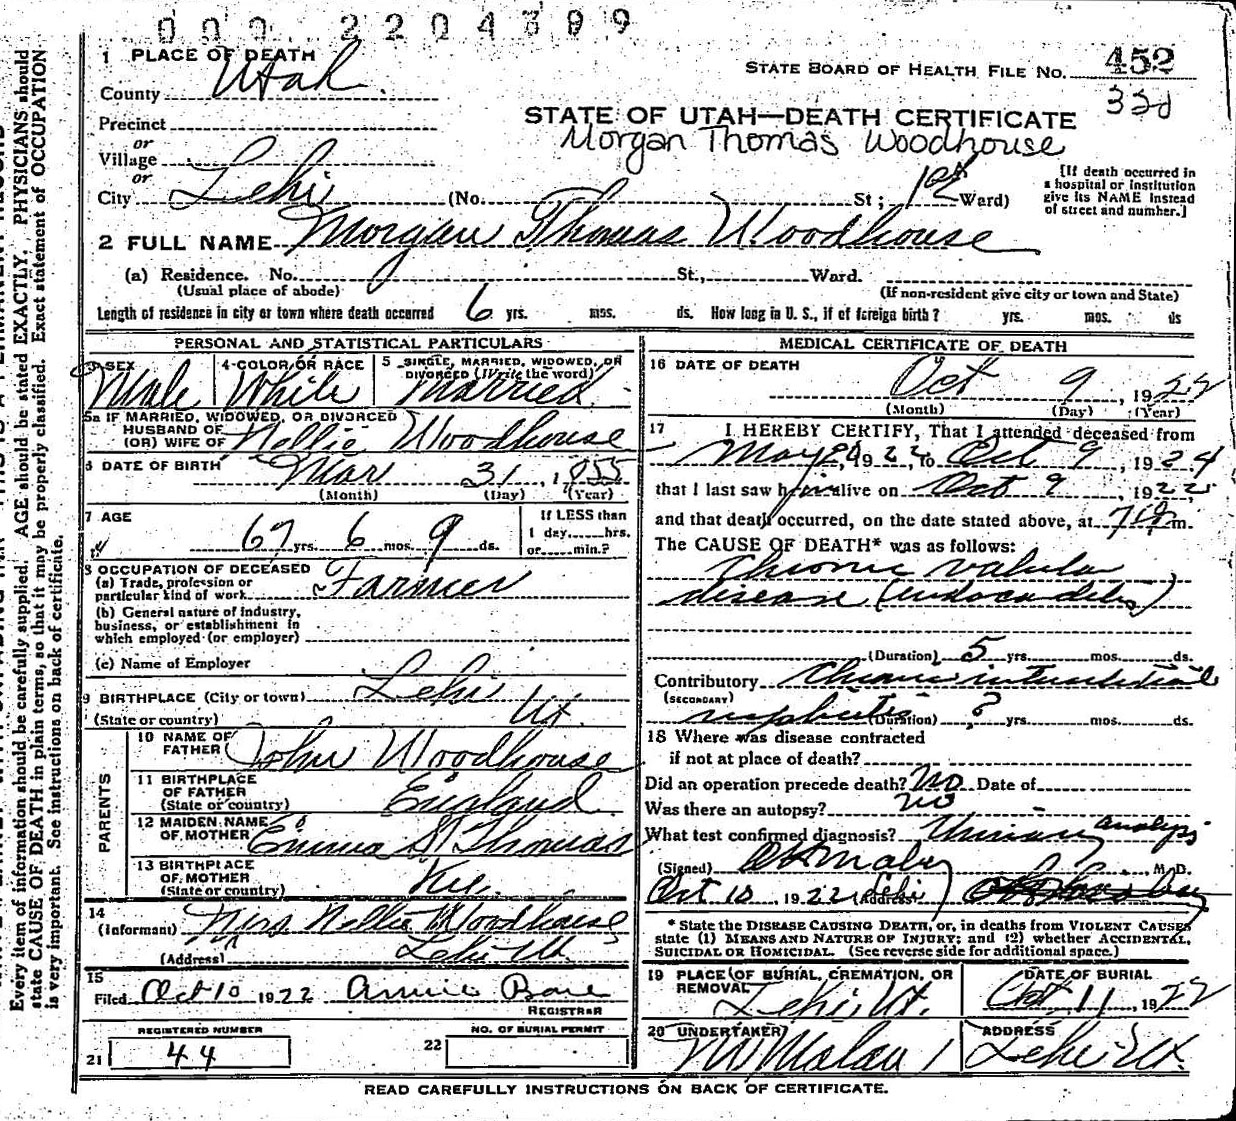 000 2204399
1 PLACE OF DEATH
County Utah
STATE BOARD OF HEALTH FILE NO. 452
33d
STATE OF UTAH—DEATH CERTIFICATE
Morgan Thomas Woodhouse
Precinct
or
Village
or
City Lehi (No. St; 1st Ward)
[If death occurred in
a hospital or institution
give its NAME instead
of street and number.]
2 FULL NAME Morgan Thomas Woodhouse
(a) Residence. No. St., Ward.
(Usual place of abode) (If non-resident give city or town and State)
Length of residence in city or town where death occurred 6 yrs. mos. ds. How long in U. S., if of foreign birth? yrs. mos. ds
PERSONAL AND STATISTICAL PARTICULARS
3 SEX Male
4 COLOR OR RACE White
5 SINGLE, MARRIED, WIDOWED, OR
DIVORCED (Write the word)
Married
5a IF MARRIED, WIDOWED, OR DIVORCED
HUSBAND OF
(OR) WIFE OF Nellie Woodhouse
6 DATE OF BIRTH Mar 31, 1855
(Month) (Day) (Year)
7 AGE
67 yrs. 6 mos. 9 ds.
If LESS than
1 day, hrs.
or min.?
8 OCCUPATION OF DECEASED
(a) Trade, profession or
particular kind of work Farmer
(b) General nature of industry,
business, or establishment in
which employed (or employer)
(c) Name of Employer
9 BIRTHPLACE (City or town) Lehi
(State or country) Ut.
PARENTS
10 NAME OF
FATHER John Woodhouse
11 BIRTHPLACE
OF FATHER
(State or country) England
12 MAIDEN NAME
OF MOTHER Emma S. Thomas
13 BIRTHPLACE
OF MOTHER
(State or country)
14
(Informant) Mrs Nellie Woodhouse
(Address) Lehi Ut.
15
Filed Oct 10 1922 Annie
REGISTRAR
REGISTERED NUMBER
21 44
NO. OF BURIAL PERMIT
22
MEDICAL CERTIFICATE OF DEATH
16 DATE OF DEATH
Oct 9, 1922
(Month) (Day) (Year)
17 I HEREBY CERTIFY, That I attended deceased from
May 1922, to Oct 9, 1924
that I last saw him alive on Oct 9, 1922
and that death occurred, on the date stated above, at m.
The CAUSE OF DEATH* was as follows:
Chronic valvular
disease (endocarditis)
(Duration) 5 yrs. mos. ds.
Contributory Chronic interstitial
(SECONDARY)
nephritis (Duration) ? yrs. mos. ds.
18 Where was disease contracted
if not at place of death?
Did an operation precede death? No Date of
Was there an autopsy? no
What test confirmed diagnosis? Urinary analysis
(Signed) M. D.
Oct 10 1922 (Address) Lehi
* State the DISEASE CAUSING DEATH, or, in deaths from VIOLENT CAUSES
state (1) MEANS AND NATURE OF INJURY; and (2) whether ACCIDENTAL,
SUICIDAL OR HOMICIDAL. (See reverse side for additional space.)
19 PLACE OF BURIAL, CREMATION, OR
REMOVAL Lehi, Ut.
DATE OF BURIAL
Oct 11, 1922
20 UNDERTAKER
ADDRESS
Lehi Ut.
READ CAREFULLY INSTRUCTIONS ON BACK OF CERTIFICATE.
Every item of information should be carefully supplied. AGE should be stated EXACTLY. PHYSICIANS should
state CAUSE OF DEATH in plain terms, so that it may be properly classified. Exact statement of OCCUPATION
is very important. See instructions on back of certificate.